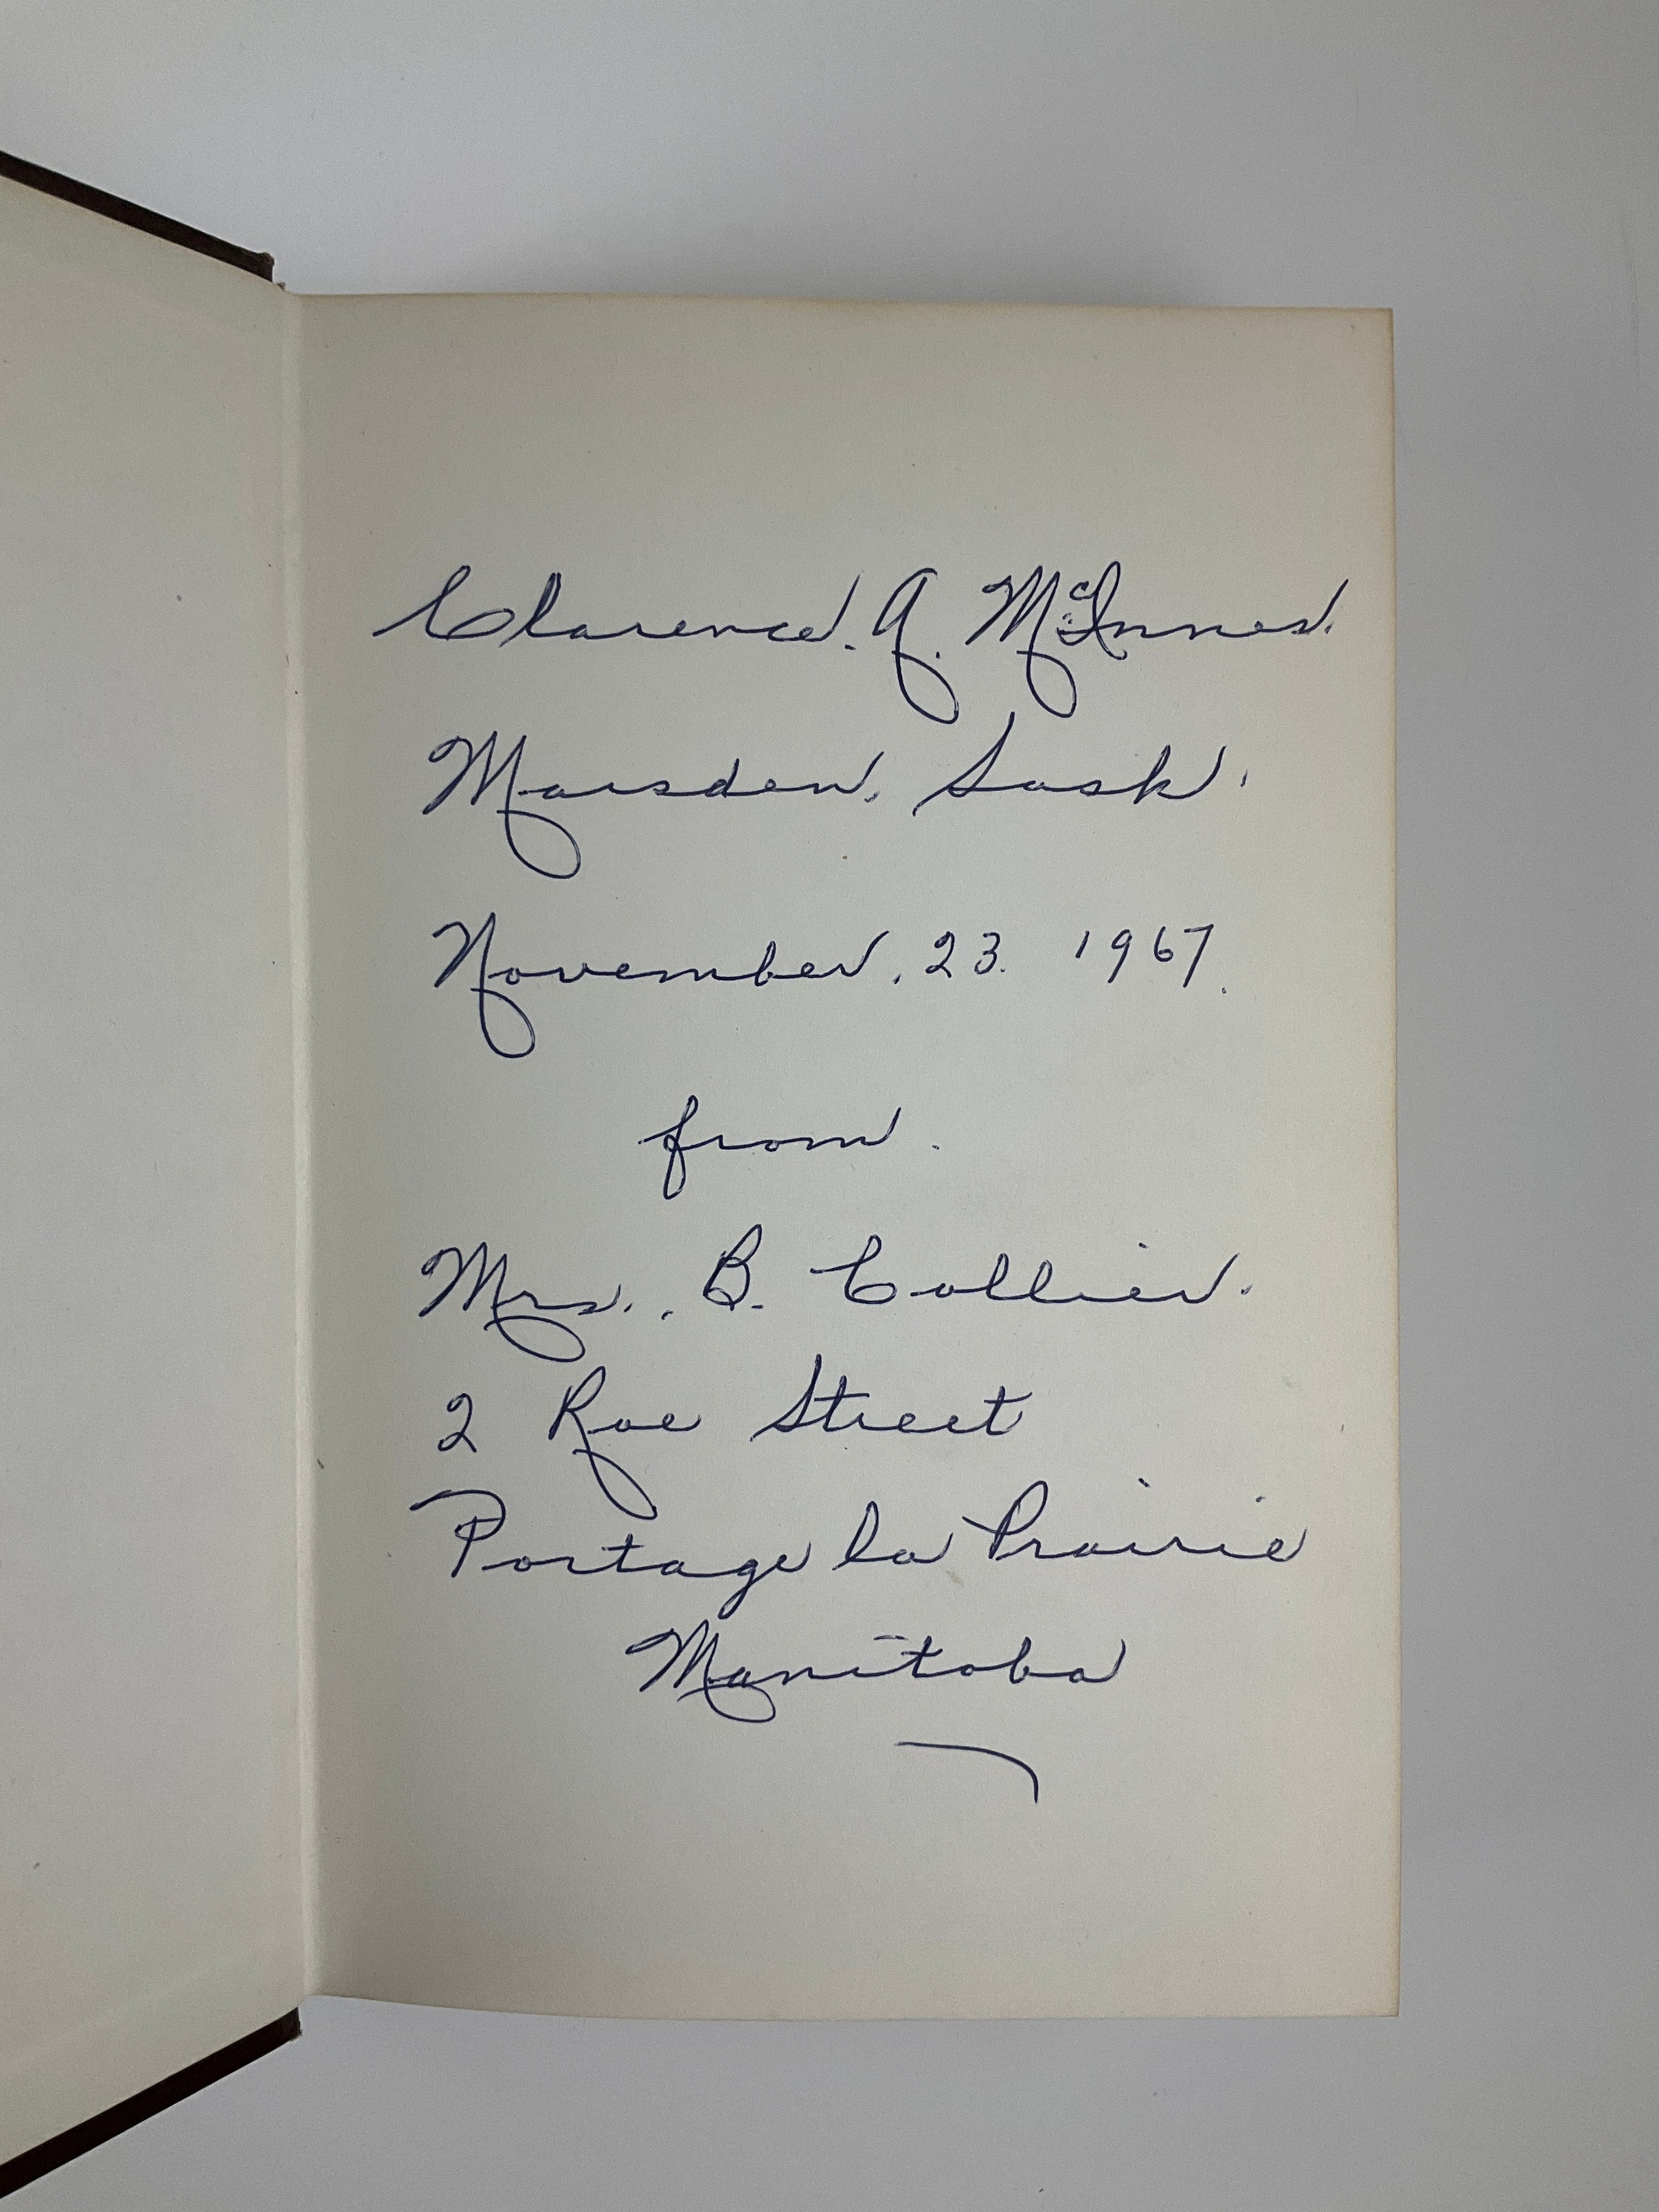 Clarence. A. McInnes.
Marsden, Sask.
November. 23. 1967.
from.
Mrs. B. Collier.
2 Rae Street
Portage la Prairie
Manitoba